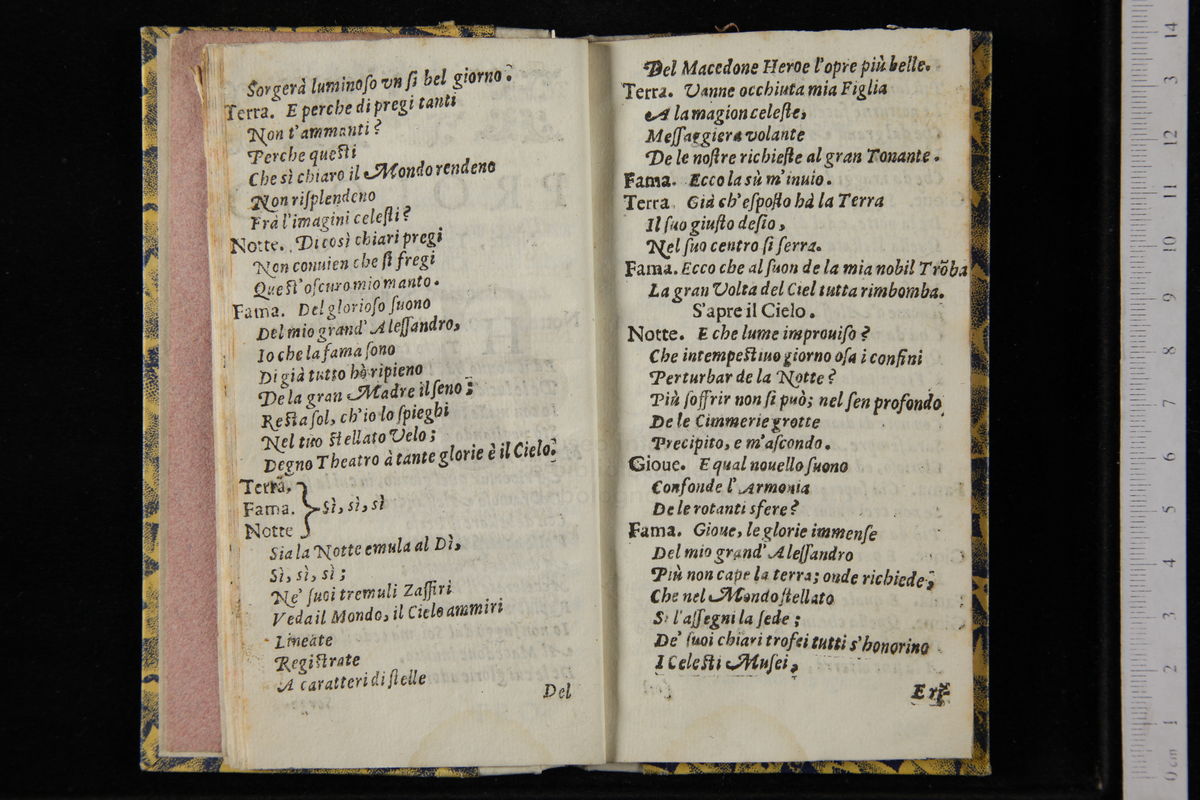 Sorgerà luminoſo vn ſi bel giorno.
Terra. E perche di pregi tanti
Non t'ammanti?
Perche queſti
Che sì chiaro il Mondo rendeno
Non riſplendeno
Frà l'imagini celeſti?
Notte. Di così chiari pregi
Non conuien che ſi fregi
Queſt'oſcuro mio manto.
Fama. Del glorioſo ſuono
Del mio grand'Aleſſandro,
Io che la fama ſono
Di già tutto hò ripieno
De la gran Madre il ſeno;
Reſta ſol, ch'io lo ſpieghi
Nel tuo ſtellato Velo;
Degno Theatro à tante glorie è il Cielo.
Terra.
Fama. } Sì, sì, sì
Notte
Sia la Notte emula al Dì,
Sì, sì, sì;
Ne' ſuoi tremuli Zaffiri
Veda il Mondo, il Cielo ammiri
Lineate
Regiſtrate
A caratteri di ſtelle
Del
Del Macedone Heroe l'opre più belle.
Terra. Vanne occhiuta mia Figlia
A la magion celeſte,
Meſſaggiera volante
De le noſtre richieſte al gran Tonante.
Fama. Ecco la sù m'inuio.
Terra. Già ch'eſpoſto hà la Terra
Il ſuo giuſto deſio,
Nel ſuo centro ſi ſerra.
Fama. Ecco che al ſuon de la mia nobil Trõba
La gran Volta del Ciel tutta rimbomba.
S'apre il Cielo.
Notte. E che lume improuiſo?
Che intempeſtiuo giorno oſa i confini
Perturbar de la Notte?
Più ſoffrir non ſi può; nel ſen profondo
De le Cimmerie grotte
Precipito, e m'aſcondo.
Gioue. E qual nouello ſuono
Confonde l'Armonia
De le rotanti sfere?
Fama. Gioue, le glorie immenſe
Del mio grand'Aleſſandro
Più non cape la terra; onde richiede,
Che nel Mondo ſtellato
Se l'aſſegni la ſede;
De' ſuoi chiari trofei tutti s'honorino
I Celeſti Muſei,
14
13
12
11
10
9
8
7
6
5
4
3
2
1
0 cm